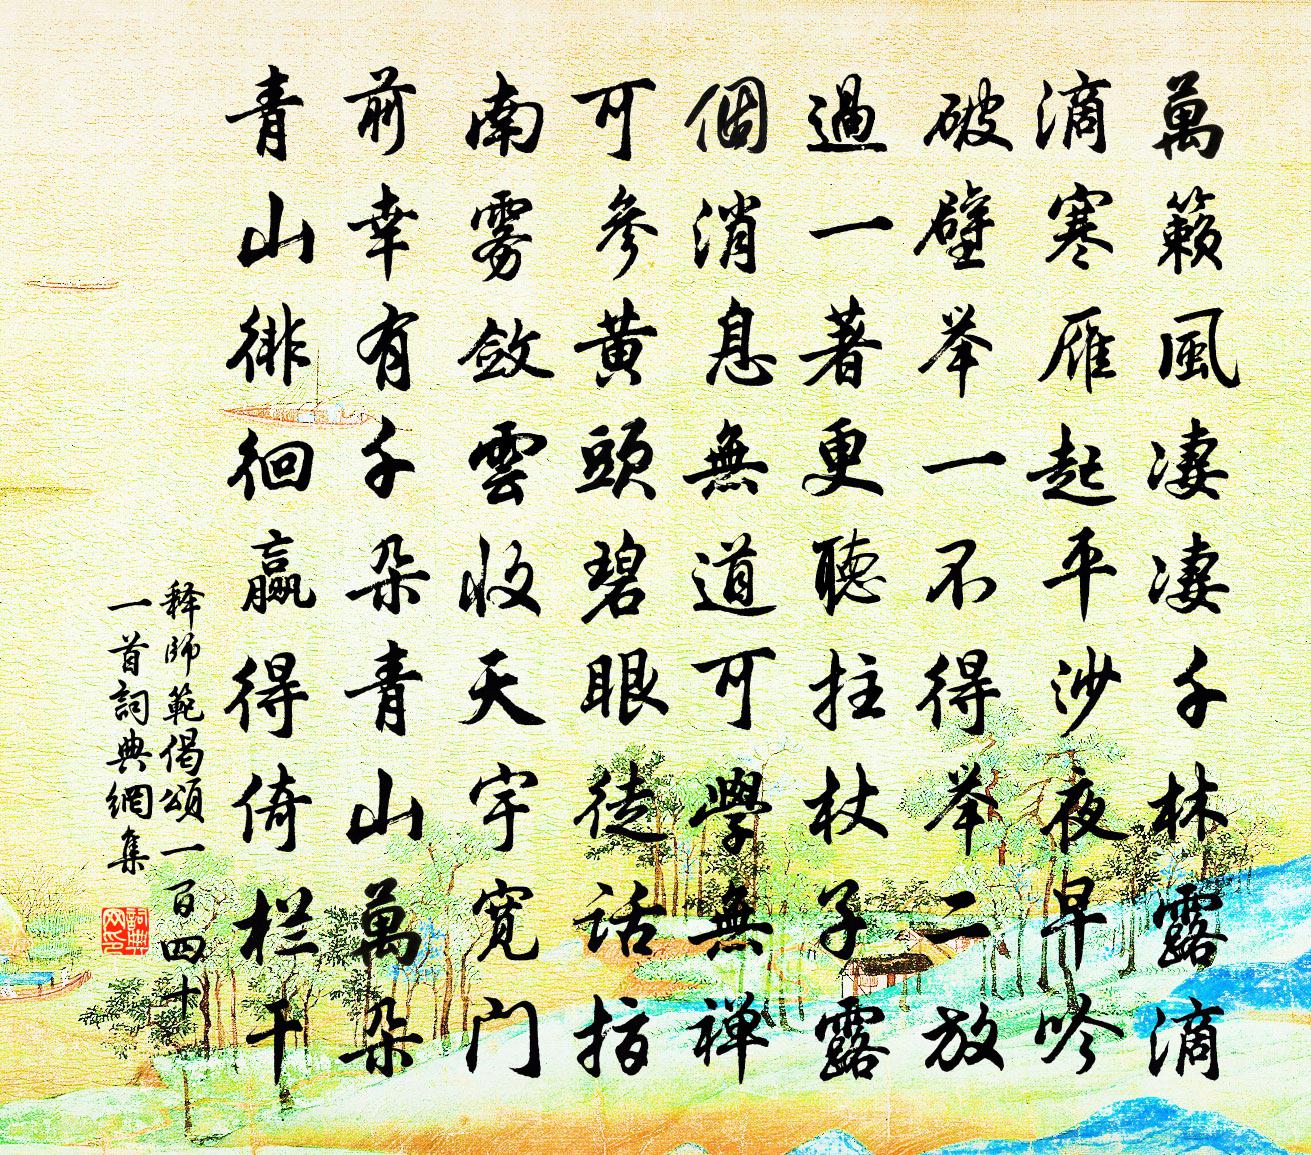 萬籟風凄凄千林露滴
滴寒雁起平沙夜早吟
破壁举一不得举二放
過一著更聽拄杖子露
個消息無道可學無禅
可參黄頭碧眼徒話指
南雾斂雲收天宇寛门
前幸有千朵青山萬朵
青山徘徊赢得倚栏干
释師範偈頌一百四十
一首詞典網集
詞典网印